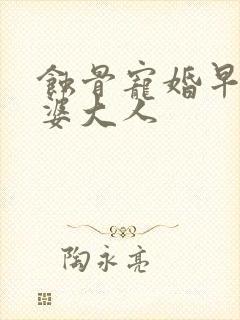 蝕骨寵婚早
婆大人
陶永亮